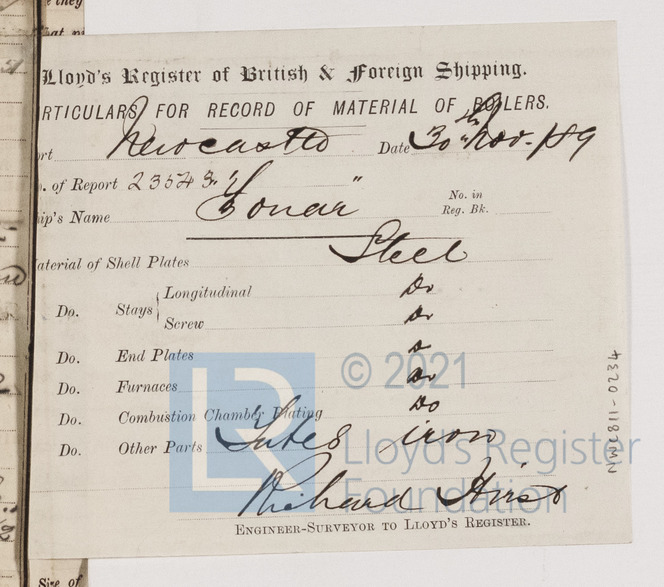 Lloyd's Register of British & Foreign Shipping.
RTICULARS FOR RECORD OF MATERIAL OF BOILERS.
ort Newcastle Date 30th Nov. /89
. of Report 23543
hip's Name "Gonar" No. in Reg. Bk.
aterial of Shell Plates Steel
Do. Stays { Longitudinal Do
Screw Do
Do. End Plates Do
Do. Furnaces Do
Do. Combustion Chamber Plating Do
Do. Other Parts Tubes iron
Richard Hirst
ENGINEER-SURVEYOR TO LLOYD'S REGISTER.
© 2021
LR Lloyd's Register
Foundation
Size of